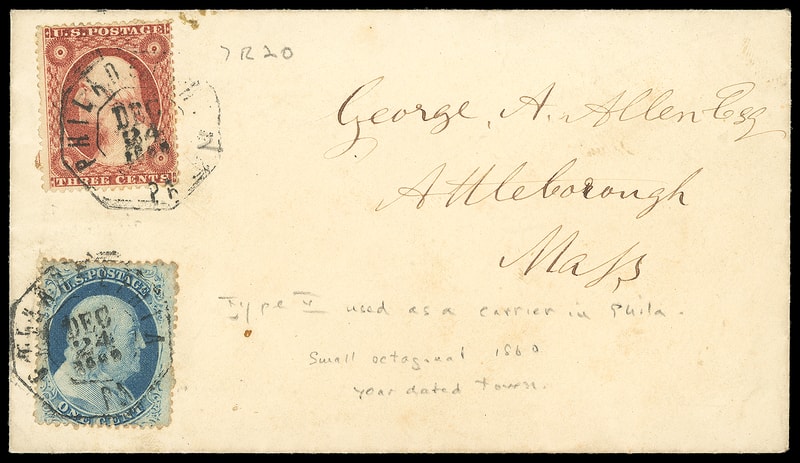 U.S. POSTAGE
THREE CENTS
DEC
24
PA
7R20
George, A. Allen Esq
Attleborough
Mass
U.S. POSTAGE
ONE CENT
DEC
24
1860
Type V used as a carrier in Phila.
Small octagonal 1860
year dated town.